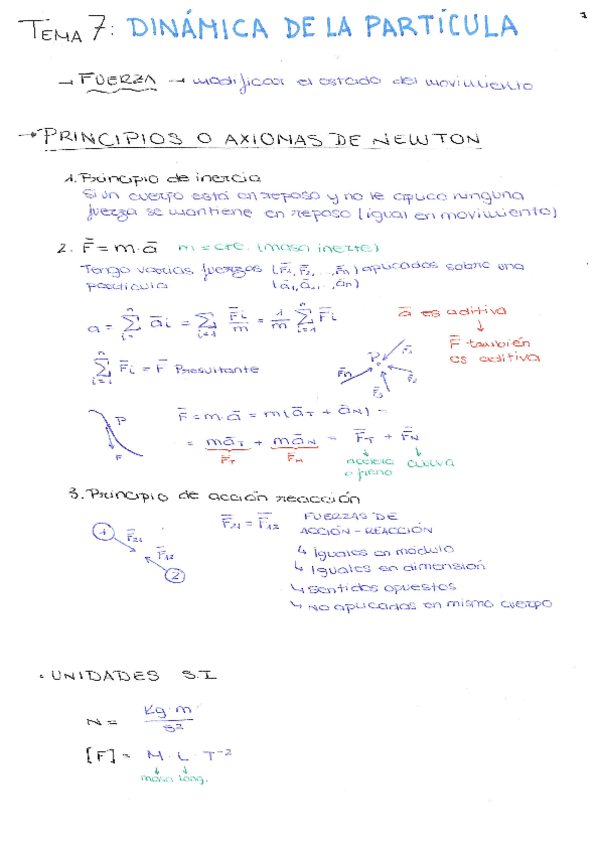 TEMA 7: DINÁMICA DE LA PARTÍCULA
1
→ FUERZA → modificar el estado del movimiento
→ PRINCIPIOS O AXIOMAS DE NEWTON
1. Principio de inercia
Si un cuerpo está en reposo y no le aplico ninguna
fuerza se mantiene en reposo (igual en movimiento)
2. F̄ = m·ā m = cte. (masa inerte)
Tengo varias fuerzas (F̄₁, F̄₂, ..., F̄n) aplicadas sobre una
partícula (ā₁, ā₂, ..., ān)
a = Σ(i=1..n) āi = Σ(i=1..n) F̄i/m = 1/m Σ(i=1..n) F̄i
ā es aditiva
↓
F̄ también
es aditiva
Σ(i=1..n) F̄i = F̄ Presultante
P
F̄n F̄₁ F̄₂ F̄₃
P
F
F̄ = m·ā = m(āT + āN) =
= māT + māN = F̄T + F̄N
F̄T F̄N
acelera
o frena
curva
3. Principio de acción reacción
1 F̄₂₁
F̄₁₂
2
F̄₂₁ = F̄₁₂ FUERZAS DE
ACCIÓN-REACCIÓN
↳ Iguales en módulo
↳ Iguales en dimensión
↳ Sentidos opuestos
↳ No aplicadas en mismo cuerpo
· UNIDADES S.I
N = Kg·m/s²
[F] = M·L·T⁻²
masa long.